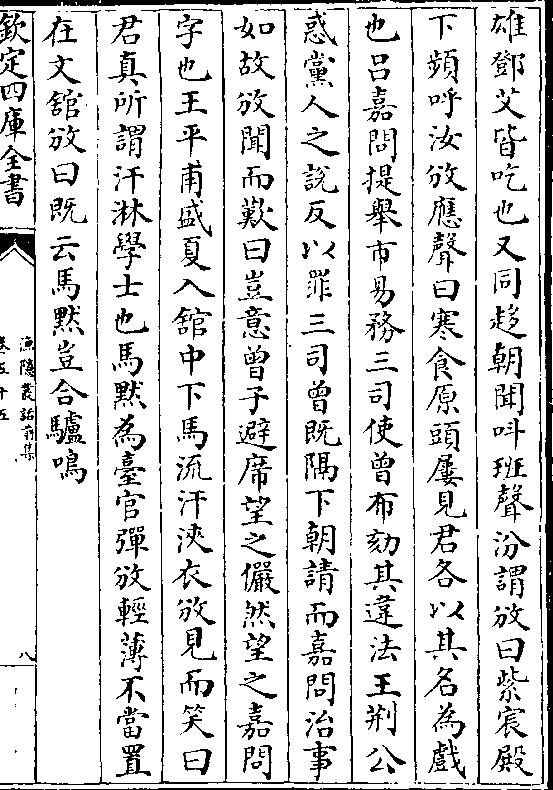 雄鄧艾皆吃也又同趍朝聞呌班聲汾謂攽曰紫宸殿
下頻呼汝攽應聲曰寒食原頭屢見君各以其名為戲
也吕嘉問提舉市易務三司使曾布劾其違法王荆公
惑黨人之說反以罪三司曾既隅下朝請而嘉問治事
如故攽聞而歎曰豈意曾子避席望之儼然望之嘉問
字也王平甫盛夏入舘中下馬流汗浹衣攽見而笑曰
君真所謂汗淋學士也馬黙為臺官彈攽輕薄不當置
在文舘攽曰既云馬黙豈合驢鳴
欽定四庫全書
漁隱叢話前集
卷五十五
八